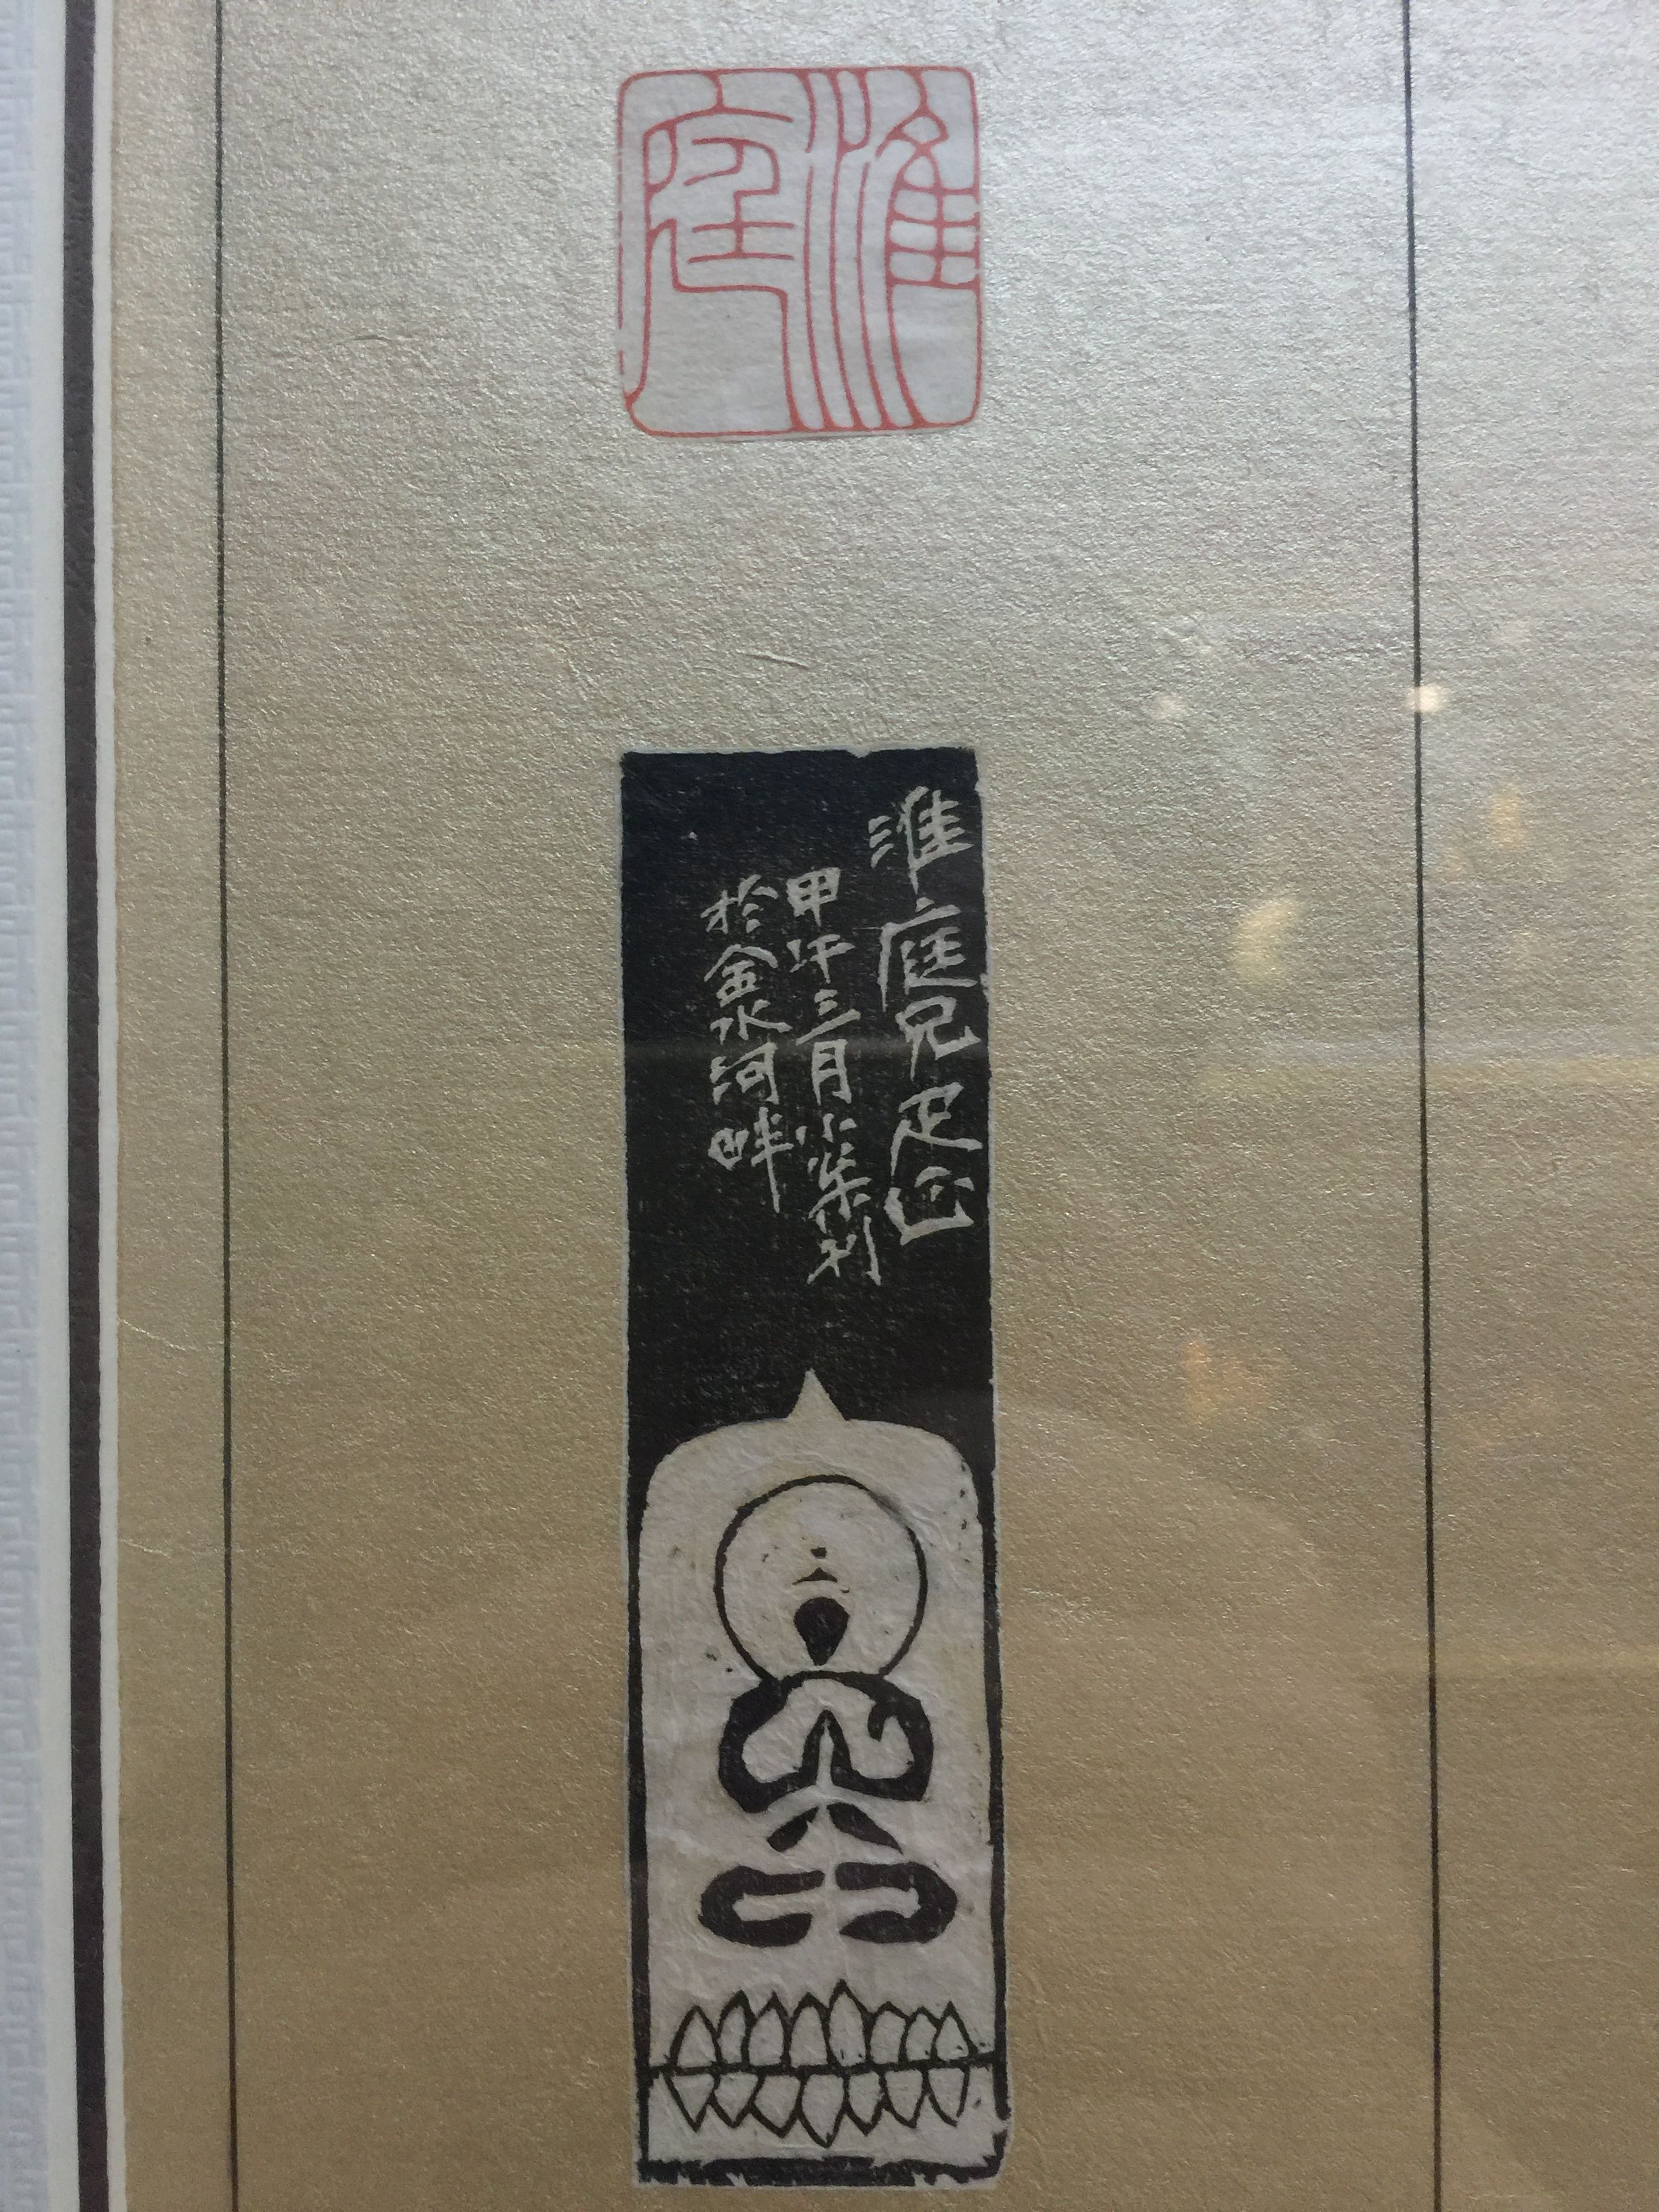 淮庭
淮庭兄疋正
甲午三月小朱刻
於金水河畔